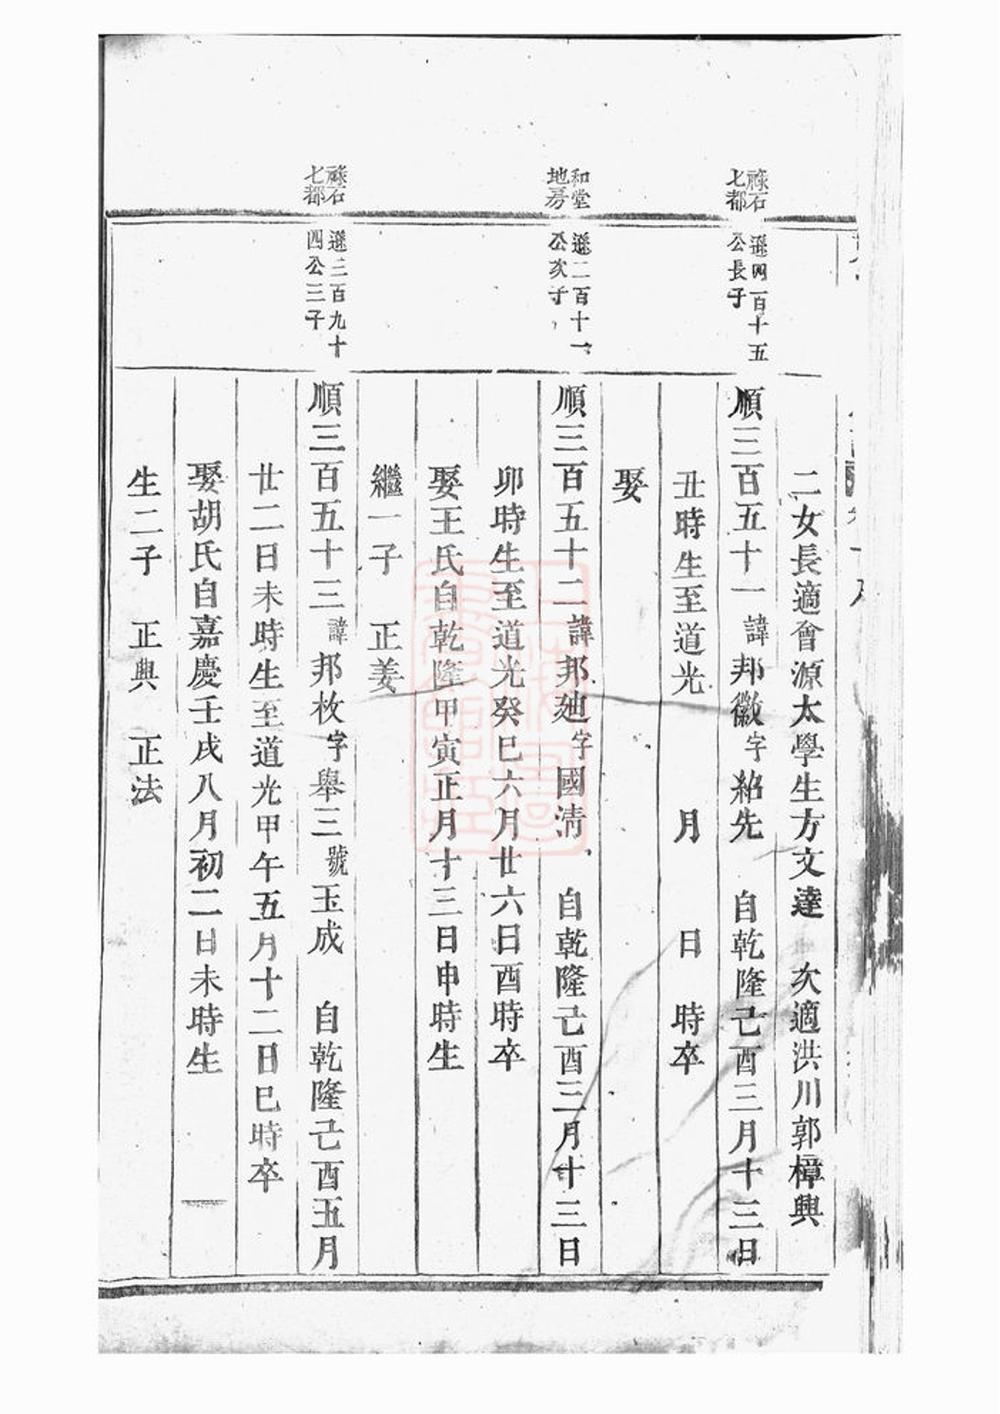 二女長適會源太學生方文達　次適洪川郭樟興
祿石
七都
遜四百十五
公長子
順三百五十一諱邦徽字紹先　自乾隆己酉三月十三日
丑時生至道光　月　日　時卒
娶
和堂
地房
遜二百十一
公次子
順三百五十二諱邦廸字國淸　自乾隆己酉三月十三日
卯時生至道光癸巳六月廿六日酉時卒
娶王氏自乾隆甲寅正月十三日申時生
繼一子　正姜
祿石
七都
遜三百九十
四公三子
順三百五十三諱邦枚字舉三號玉成　自乾隆己酉五月
廿二日未時生至道光甲午五月十二日巳時卒
娶胡氏自嘉慶壬戌八月初二日未時生
生二子　正興　正法